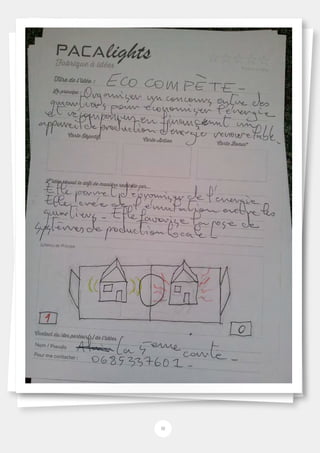 PACAlights
Fabrique à idées
Titre de l'idée : ECO COMPÈTE -
Le principe : Organiser un concours entre des
quartiers pour économiser l'énergie
et récompenser en finançant un
appareil de production d'énergie renouvelable -
Carte Objectif Carte Action Carte Bonus
L'idée prend le défi de manière radicale car...
Elle permet d'économiser de l'énergie
Elle crée de l'émulation entre les
quartiers - Elle favorise la pose de
systèmes de production locale
Schéma de Principe
1
0
Contact du (des) porteur(s) de l'idées
Nom / Pseudo la 5ème carte -
Pour me contacter : 0685337601 -